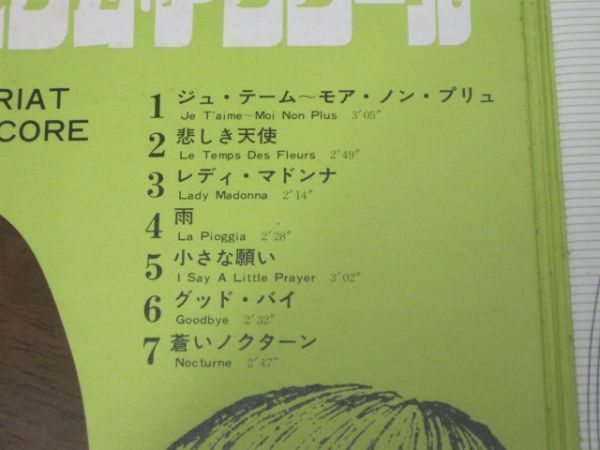 RIAT
CORE
1 ジュ・テーム～モア・ノン・プリュ
Je T'aime~Moi Non Plus 3'05"
2 悲しき天使
Le Temps Des Fleurs 2'49"
3 レディ・マドンナ
Lady Madonna 2'14"
4 雨
La Pioggia 2'28"
5 小さな願い
I Say A Little Prayer 3'02"
6 グッド・バイ
Goodbye 2'32"
7 蒼いノクターン
Nocturne 2'47"